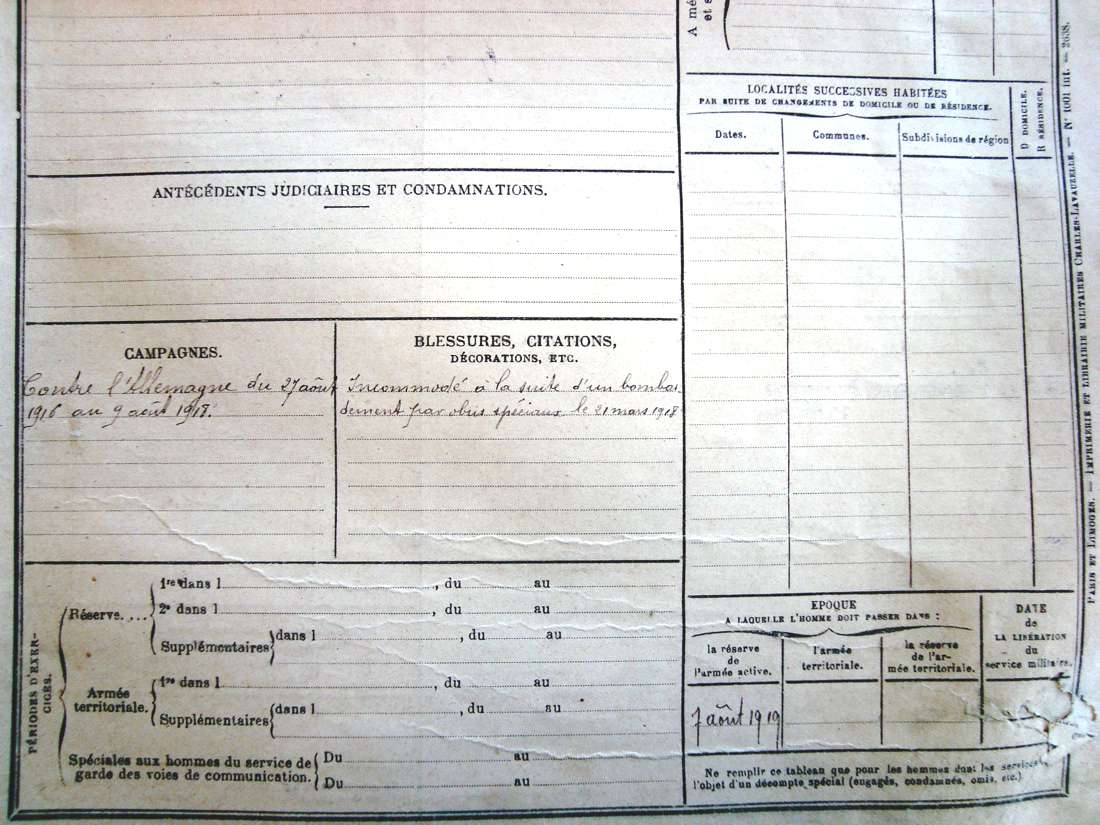 A mé
et s
LOCALITÉS SUCCESSIVES HABITÉES
PAR SUITE DE CHANGEMENTS DE DOMICILE OU DE RÉSIDENCE.
Dates.
Communes.
Subdivisions de région
D DOMICILE.
R RÉSIDENCE.
ANTÉCÉDENTS JUDICIAIRES ET CONDAMNATIONS.
CAMPAGNES.
Contre l'Allemagne du 27 août
1916 au 9 août 1918.
BLESSURES, CITATIONS,
DÉCORATIONS, ETC.
Incommodé à la suite d'un bombar
dement par obus spéciaux le 21 mars 1918
PÉRIODES D'EXER-
CICES.
Réserve....
1re dans l , du au
2e dans l , du au
Supplémentaires dans l , du au
Armée
territoriale.
1re dans l , du au
Supplémentaires dans l , du au
Spéciales aux hommes du service de
garde des voies de communication.
Du au
Du au
EPOQUE
A LAQUELLE L'HOMME DOIT PASSER DANS :
la réserve
de
l'armée active.
l'armée
territoriale.
la réserve
de l'ar-
mée territoriale.
DATE
de
LA LIBÉRATION
du
service militaire.
7 août 1919
Ne remplir ce tableau que pour les hommes dont les services
l'objet d'un décompte spécial (engagés, condamnés, omis, etc.)
PARIS ET LIMOGES. — IMPRIMERIE ET LIBRAIRIE MILITAIRES CHARLES-LAVAUZELLE. — N° 1001 int. — 2638.